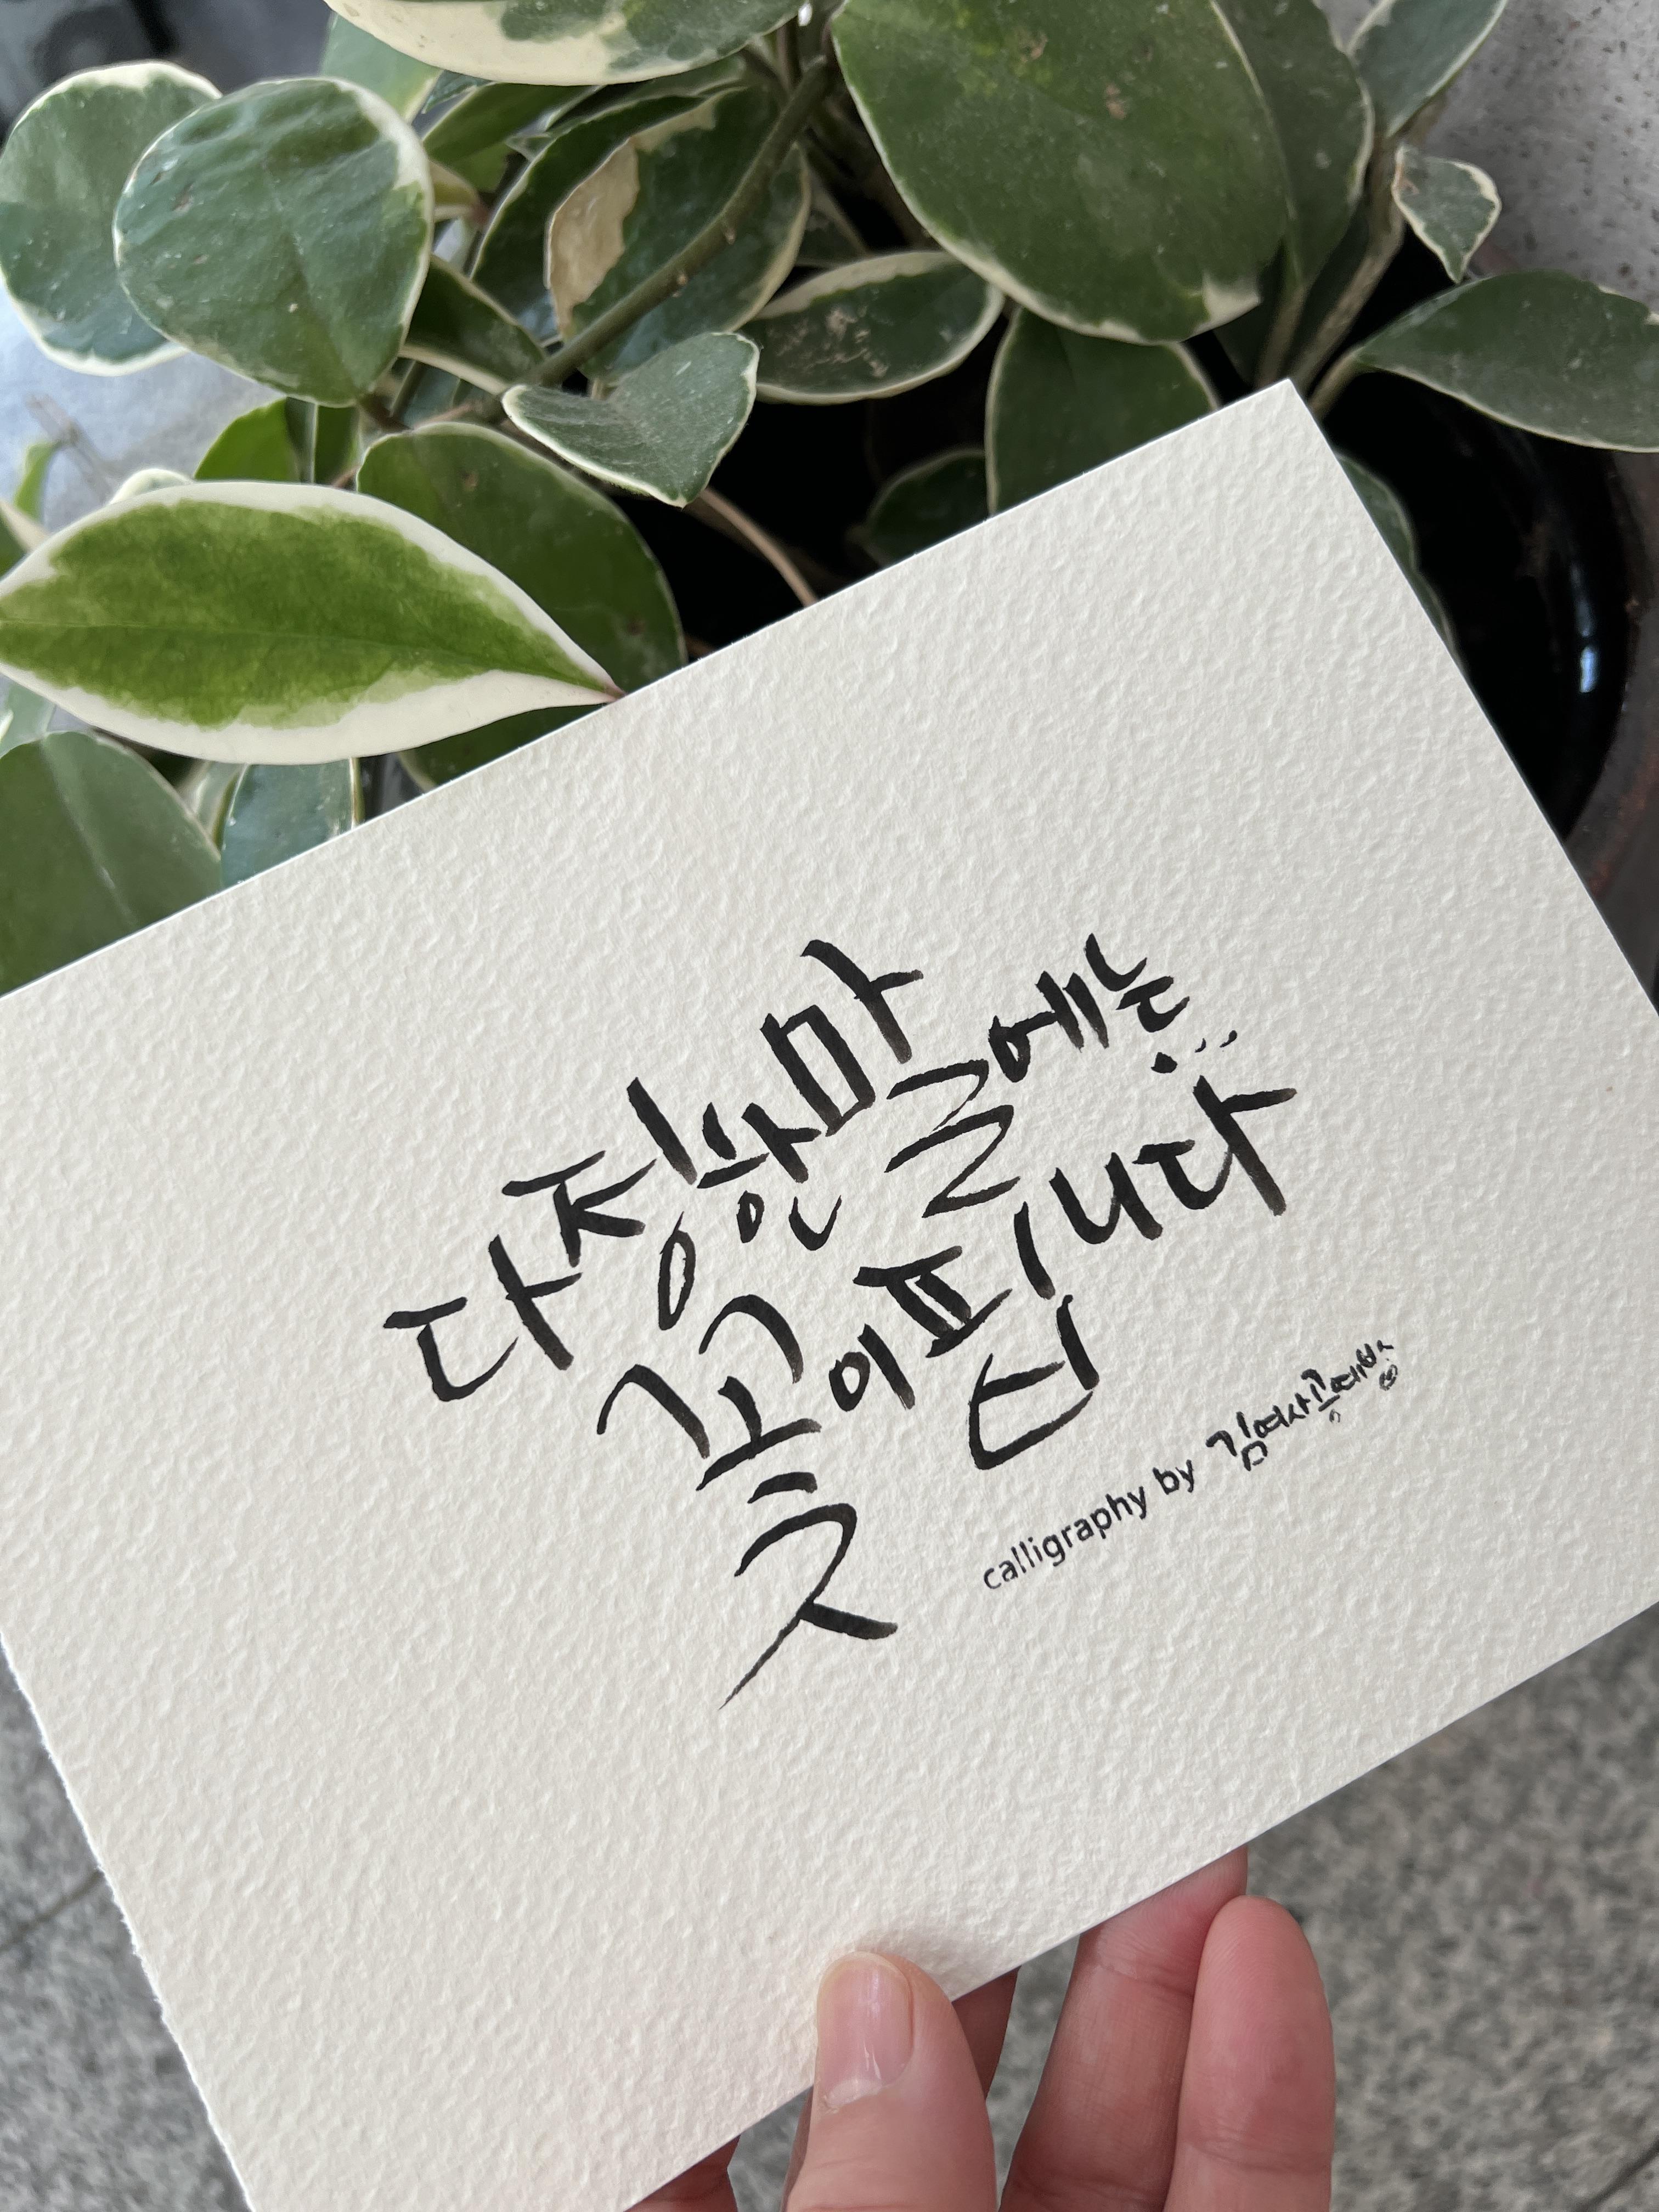 다정한 말에는...
꽃이 핍니다
calligraphy by 김여사공예방